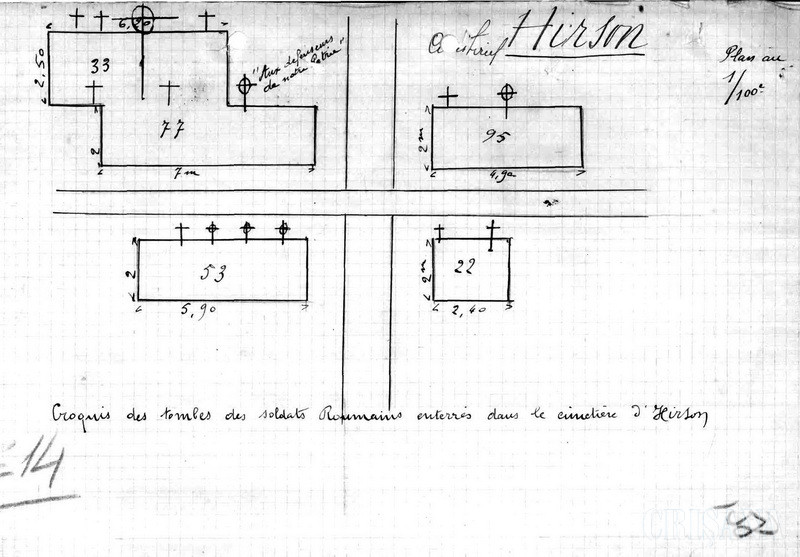 Hirson
Plan au
1/100e
6,20
2,50
33
"Aux defenseurs
de notre Patrie"
77
2
7 m
95
2 m
4,90
53
2
5,90
22
2 m
2,40
Croquis des tombes des soldats Roumains enterrés dans le cimetière d'Hirson
=14